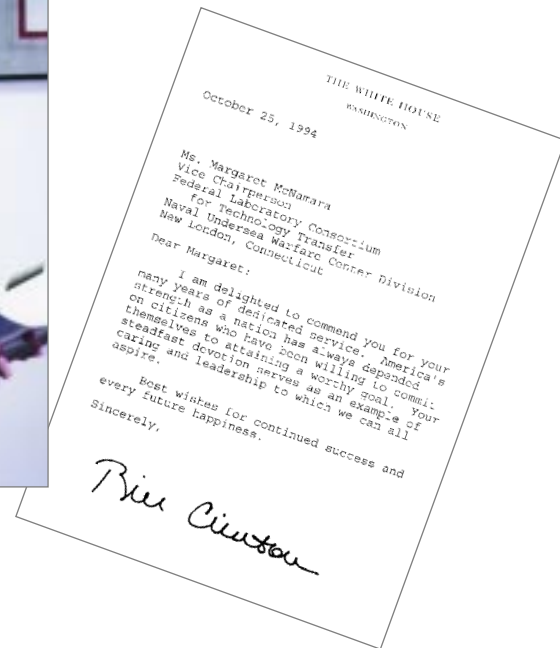 THE WHITE HOUSE
WASHINGTON
October 25, 1994
Ms. Margaret McNamara
Vice Chairperson
Federal Laboratory Consortium
for Technology Transfer
Naval Undersea Warfare Center Division
New London, Connecticut
Dear Margaret:
I am delighted to commend you for your
many years of dedicated service. America's
strength as a nation has always depended
on citizens who have been willing to commit
themselves to attaining a worthy goal. Your
steadfast devotion serves as an example of
caring and leadership to which we can all
aspire.
Best wishes for continued success and
every future happiness.
Sincerely,
Bill Clinton